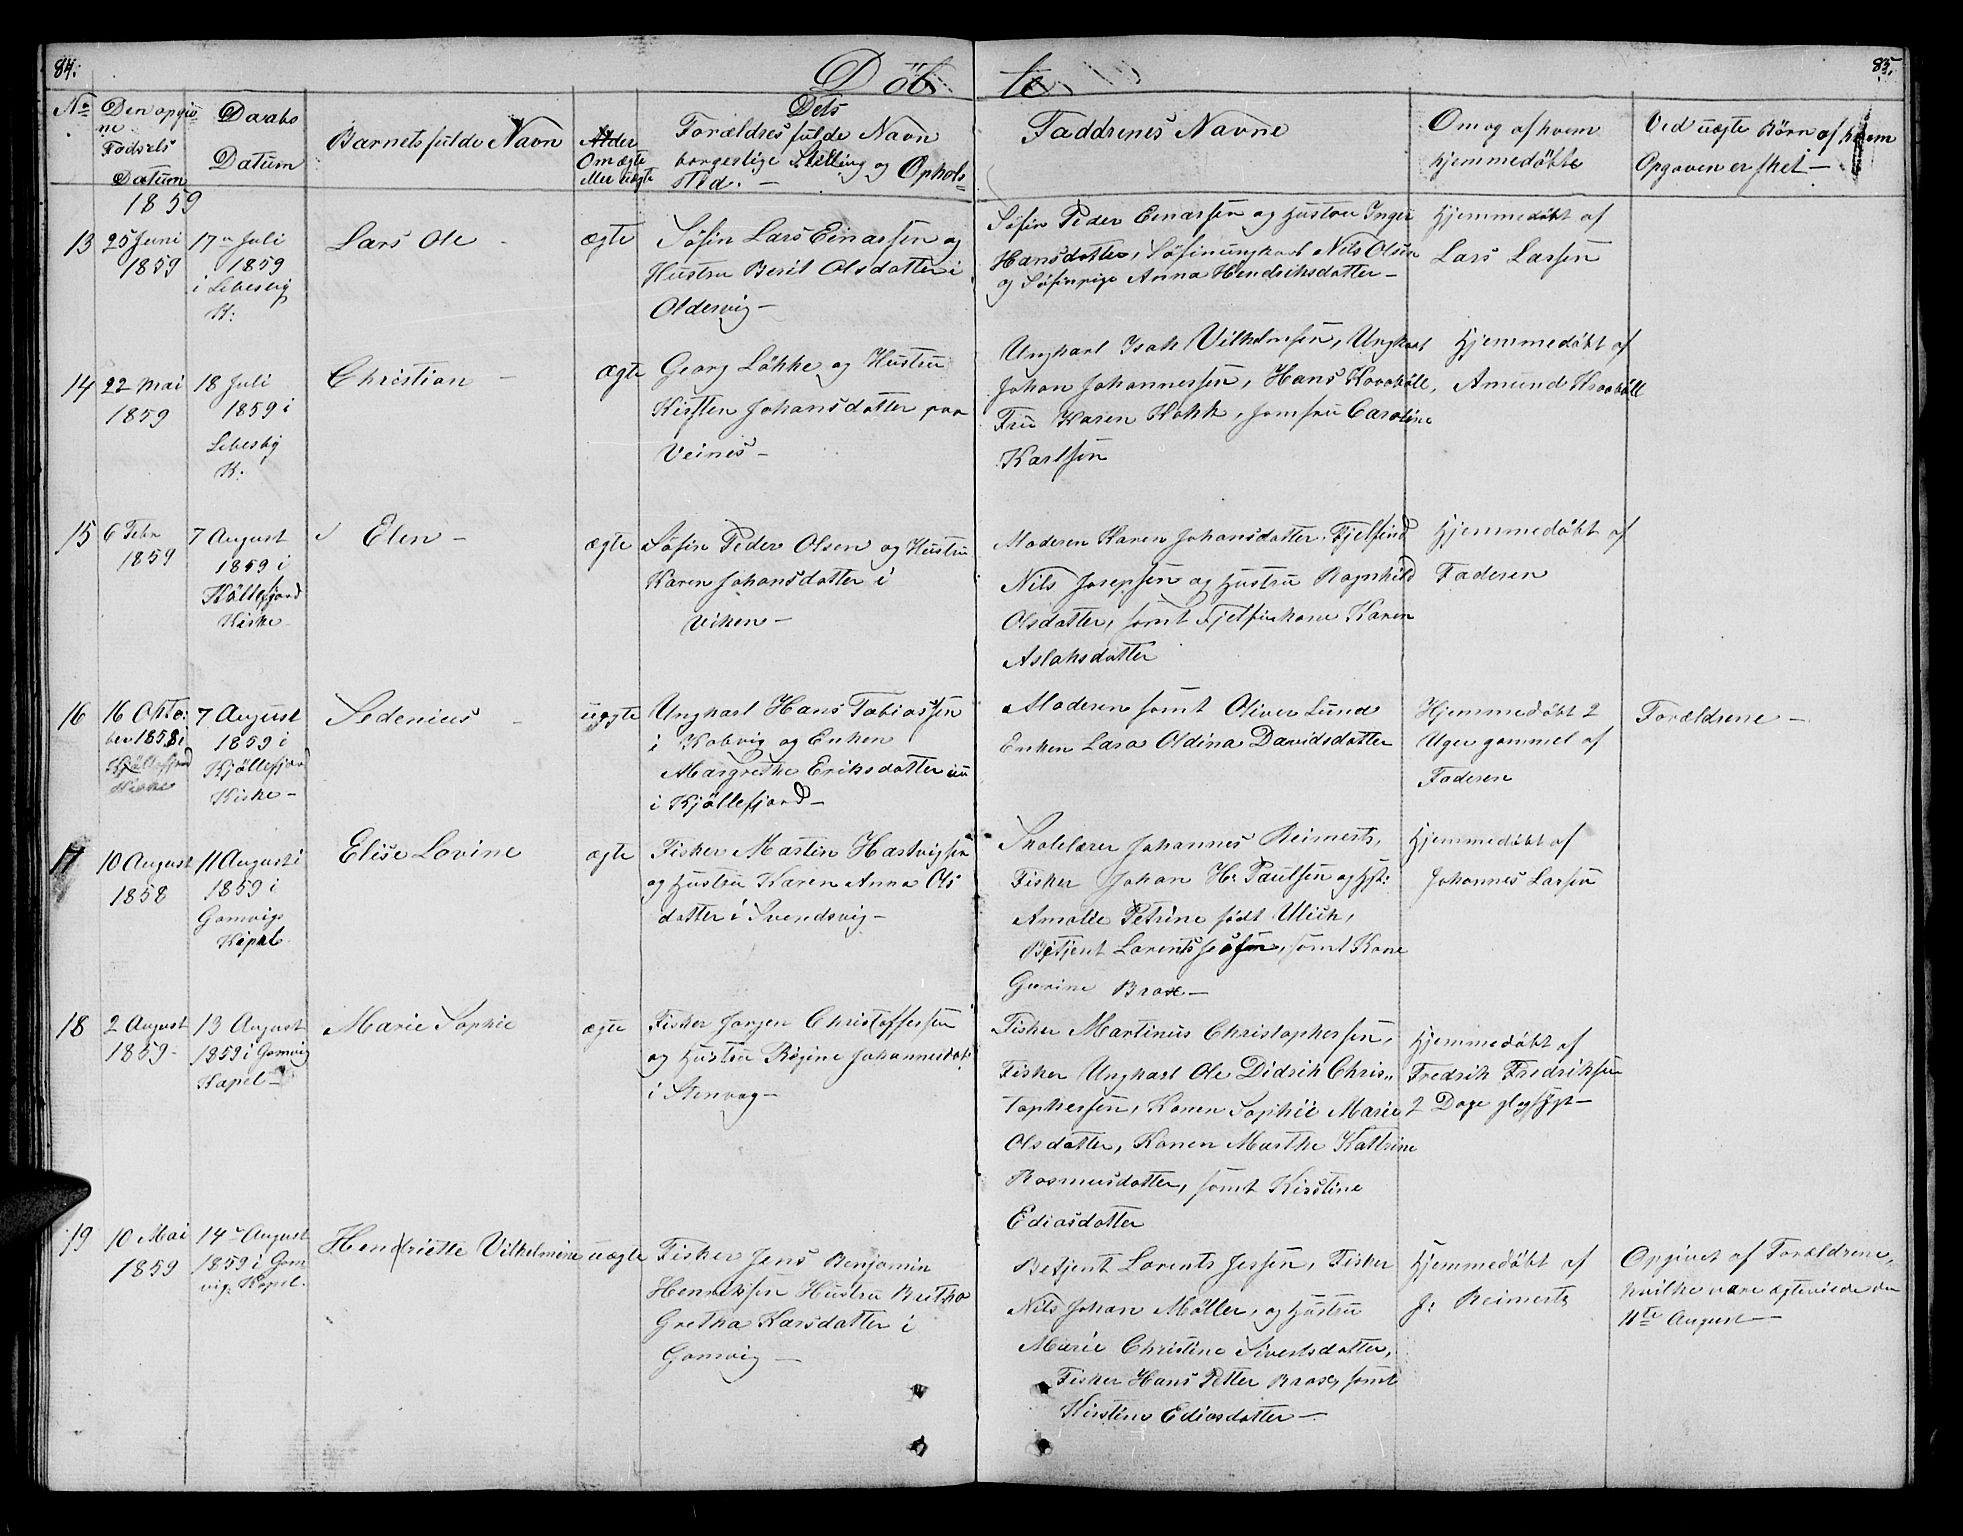 84.
Döb te
85.
No
Den opgiv
ne
Fødsels
Datum
Daabs
Datum
Barnets fulde Navn
Alder
Om ægte
eller uægte
Dets
Forældres fulde Navn
borgeslige Stilling og Ophols-
sted. -
Faddrenes Navne
Om og af hvem
hjemmedøbte
Ved uægte Børn af hvem
Opgaven er sket -
1859
13
25 Juni
1859
17 Juli
1859
i Lebesby
K:
Lars Ole -
ægte
Søfin Lars Einarsen og
Hustru Berit Olsdatter i
Oldervig -
Søfin Peder Einarsen og Hustru Inger
Hansdatter, Søfinungkarl Nils Olsen
og Søfinpige Anna Hendriksdatter -
Hjemmedøbt af
Lars Larsen
14
22 Mai
1859
18 Juli
1859 i
Lebesby
K:
Christian -
ægte
Georg Løkke og Hustru
Kirsten Johansdatter paa
Veines -
Ungkarl Isak Vilhelmsen, Ungkarl
Johan Johannessen, Hans Kraabøll,
Fru Karen Kokk, Jomfru Caroline
Karlsen
Hjemmedøbt af
Amund Kraabøll
15
6 Febr
1859
7 August
1859 i
Kjöllefjord
Kirke
Elen -
ægte
Søfin Peder Olsen og Hustru
Karen Johansdatter i
Viken -
Moderen Karen Johansdatter, Fjelfind
Nils Josepsen og Hustru Ragnhild
Olsdatter, samt Fjelfinkone Karen
Aslaksdatter
Hjemmedøbt af
Faderen
16
16 Okto:
ber 1858 i
Kjöllefjord
Kirke
7 August
1859 i
Kjöllefjord
Kirke -
Sedenius -
uægte
Ungkarl Hans Tobiassen
i Kobvig og Enken
Margrethe Eriksdatter
i Kjöllefjord -
Moderen samt Oliver Lund
Enken Lara Oldina Davidsdatter
Hjemmedøbt 2
Uger gammel af
Faderen
Forældrene -
17
10 August
1858
11 August i
1859 i
Gamvigs
Kapel.
Elise Lovine
ægte
Fisker Martin Hartvigsen
og Hustru Karen Anna Ols
datter i Svendsvig -
Skolelærer Johannes Reimerts,
Fisker Johan H. Paulsen og Hst:
Amalie Petrine født Ulich,
Betjent Lorents, samt Kone
Gurine Brox -
Hjemmedøbt af
Johannes Larsen
18
2 August
1859 -
13 August
1859 i Gamvig
Kapel -
Marie Sophie
ægte
Fisker Jørgen Christoffersen
og Hustru Regine Johannesdat:
i Stenvaag -
Fisker Martinus Christophersen,
Fisker Ungkarl Ole Didrik Chris,,
tophersen, Konen Sophie Marie
Olsdatter, Konen Marthe Kattrine
Rasmusdatter, samt Kirstine
Ediasdatter
Hjemmedøbt af
Fredrik Fredriksen
2 Dage gl
19
10 Mai
1859
14 August
1859 i Gam
vig Kapel.
Hendriette Vilhelmine
uægte
Fisker Jens Benjamin
Henriksen Hustru Bertha
Gretha Larsdatter i
Gamvig -
Betjent Lorents Jessen, Fisker
Nils Johan Møller og Hustru
Marie Christine Sivertsdatter,
Fisker Hans Petter Brox, samt
Kirstine Ediasdatter -
Hjemmedøbt af
J: Reimerts
Opgivet af Forældrene,
hvilke vare ægteviede den
11te August -